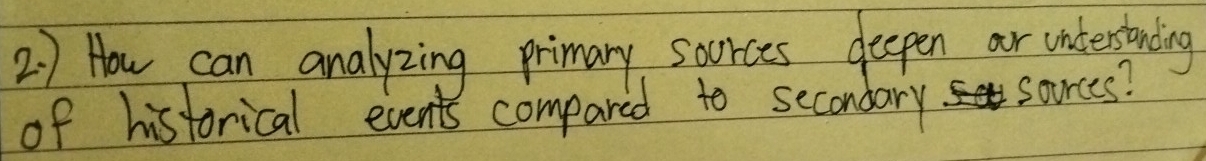 2.) How can analyzing primary sources deepen our understanding
of historical events compared to secondary sources?